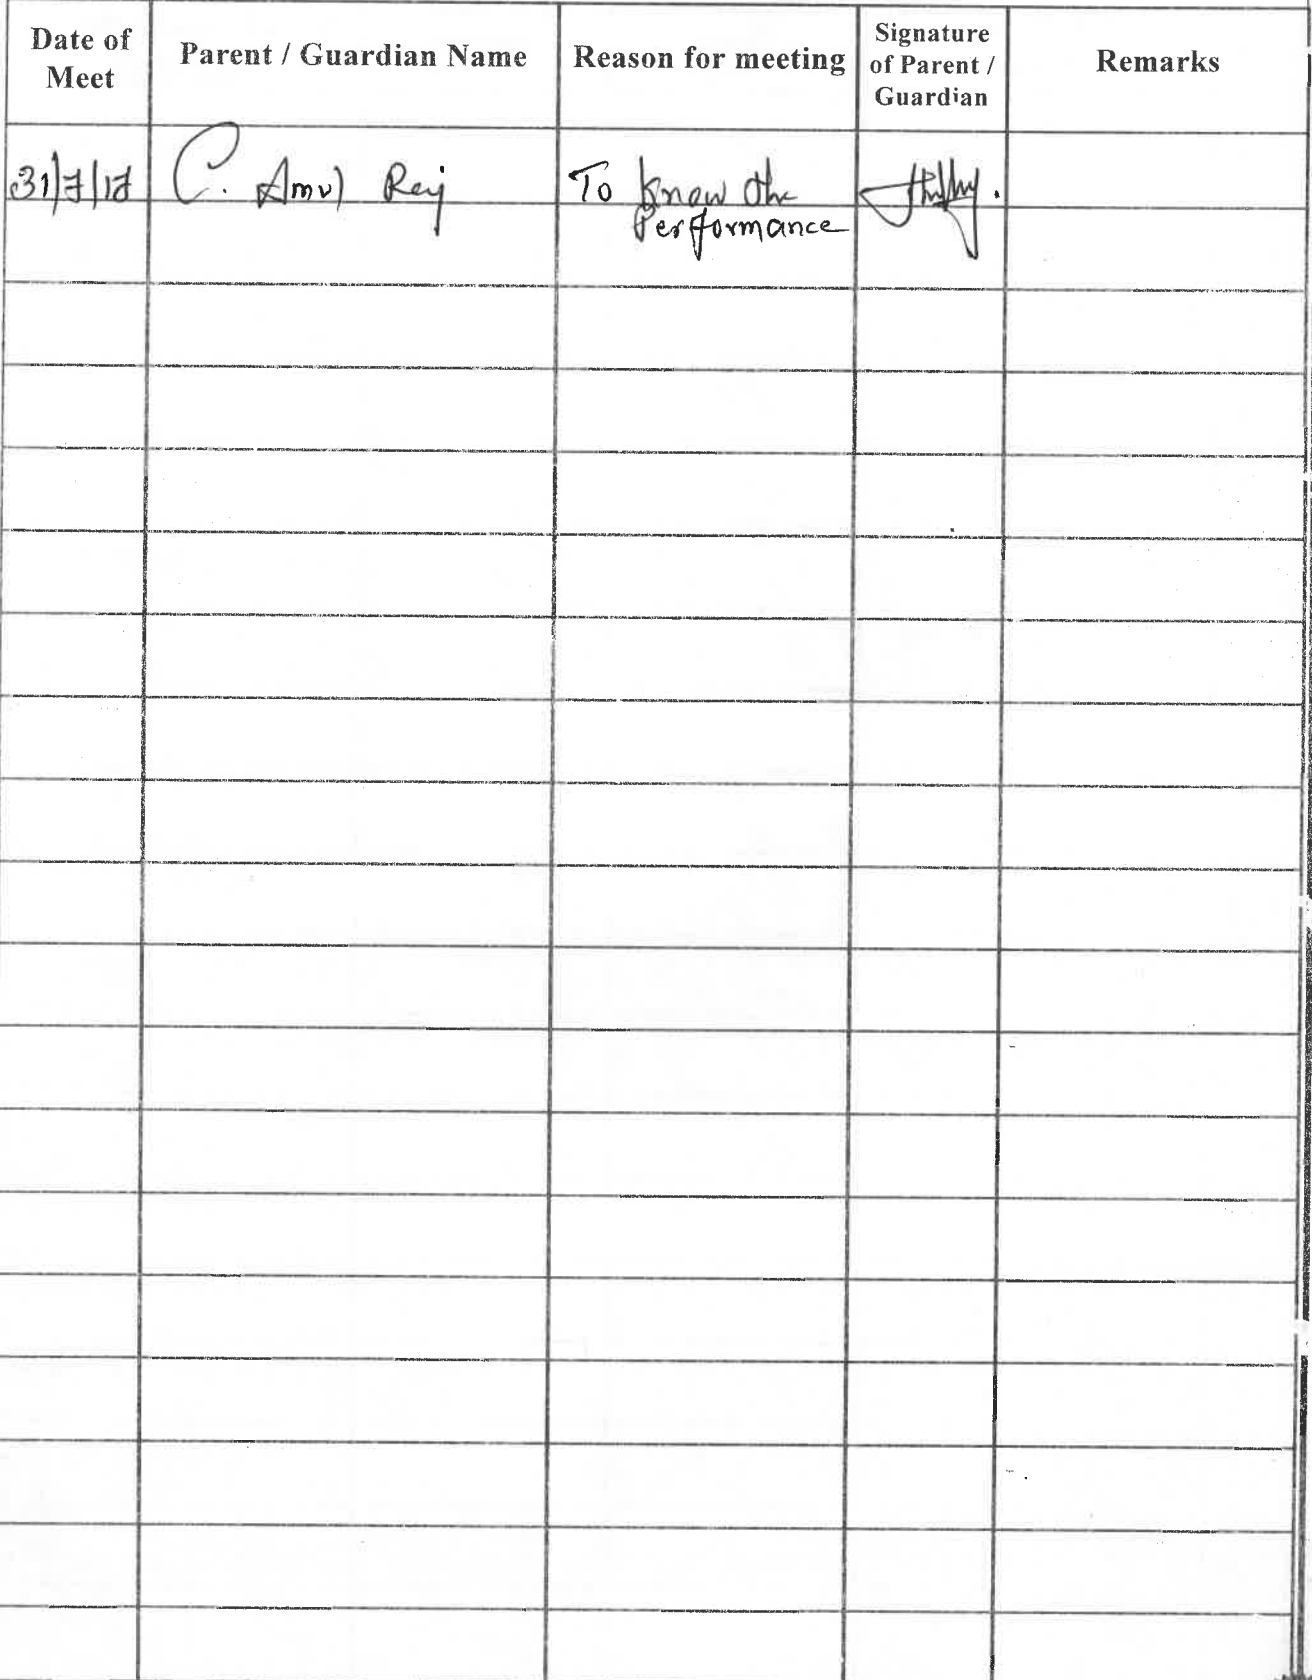 Date of
Meet
Parent / Guardian Name
Reason for meeting
Signature
of Parent /
Guardian
Remarks
31/7/17
C. Amul Raj
To know the
Performance